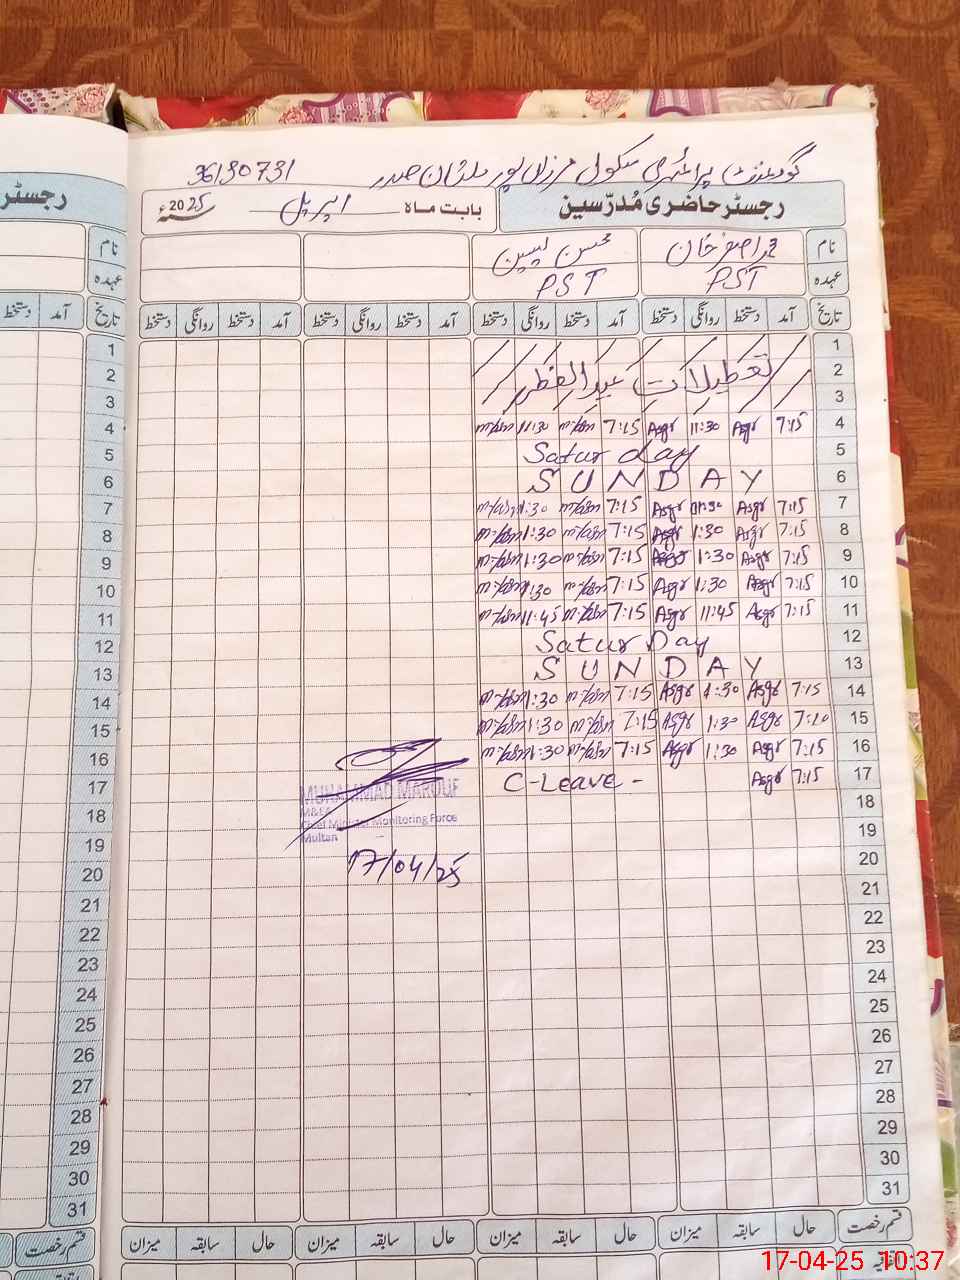 گورنمنٹ پرائمری سکول پور ملتان صدر 36130731
رجسٹر حاضری مُدرّسین بابت ماہ اپریل 2025ء
نام اصغر خان محسن
عہدہ PST PST
تاریخ آمد دستخط روانگی دستخط آمد دستخط روانگی دستخط آمد دستخط روانگی دستخط آمد دستخط روانگی دستخط
1
2 تعطیلات عید الفطر
3
4 7:15 Asgr 11:30 Asgr 7:15 11:30
5 Satur day
6 S U N D A Y
7 7:15 Asgr Asgr 7:15 1:30
8 7:15 Asgr 1:30 Asgr 7:15 1:30
9 7:15 Asgr 1:30 Asgr 7:15 1:30
10 7:15 Asgr 1:30 Asgr 7:15 1:30
11 7:15 Asgr 11:45 Asgr 7:15 11:45
12 Satur Day
13 S U N D A Y
14 7:15 Asgr 1:30 Asgr 7:15 1:30
15 Asgr 1:30 Asgr 7:15 1:30
16 7:15 Asgr 1:30 Asgr 7:15 1:30
17 7:15 Asgr C-Leave -
MUHAMMAD MAROUF
M&EA
Chief Minister Monitoring Force
Multan
17/04/25
18
19
20
21
22
23
24
25
26
27
28
29
30
31
قسم رخصت حال سابقہ میزان حال سابقہ میزان حال سابقہ میزان حال سابقہ میزان
رجسٹر
نام
عہدہ
تاریخ آمد دستخط
1
2
3
4
5
6
7
8
9
10
11
12
13
14
15
16
17
18
19
20
21
22
23
24
25
26
27
28
29
30
31
قسم رخصت
17-04-25 10:37